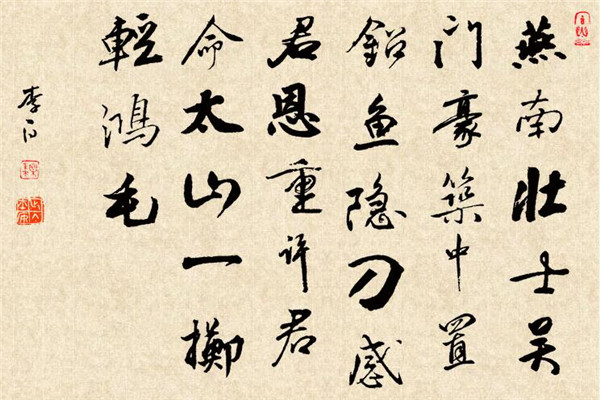 燕南壮士吴
门豪築中置
鉛鱼隐刀感
君恩重许君
命太山一擲
輕鸿毛
李白